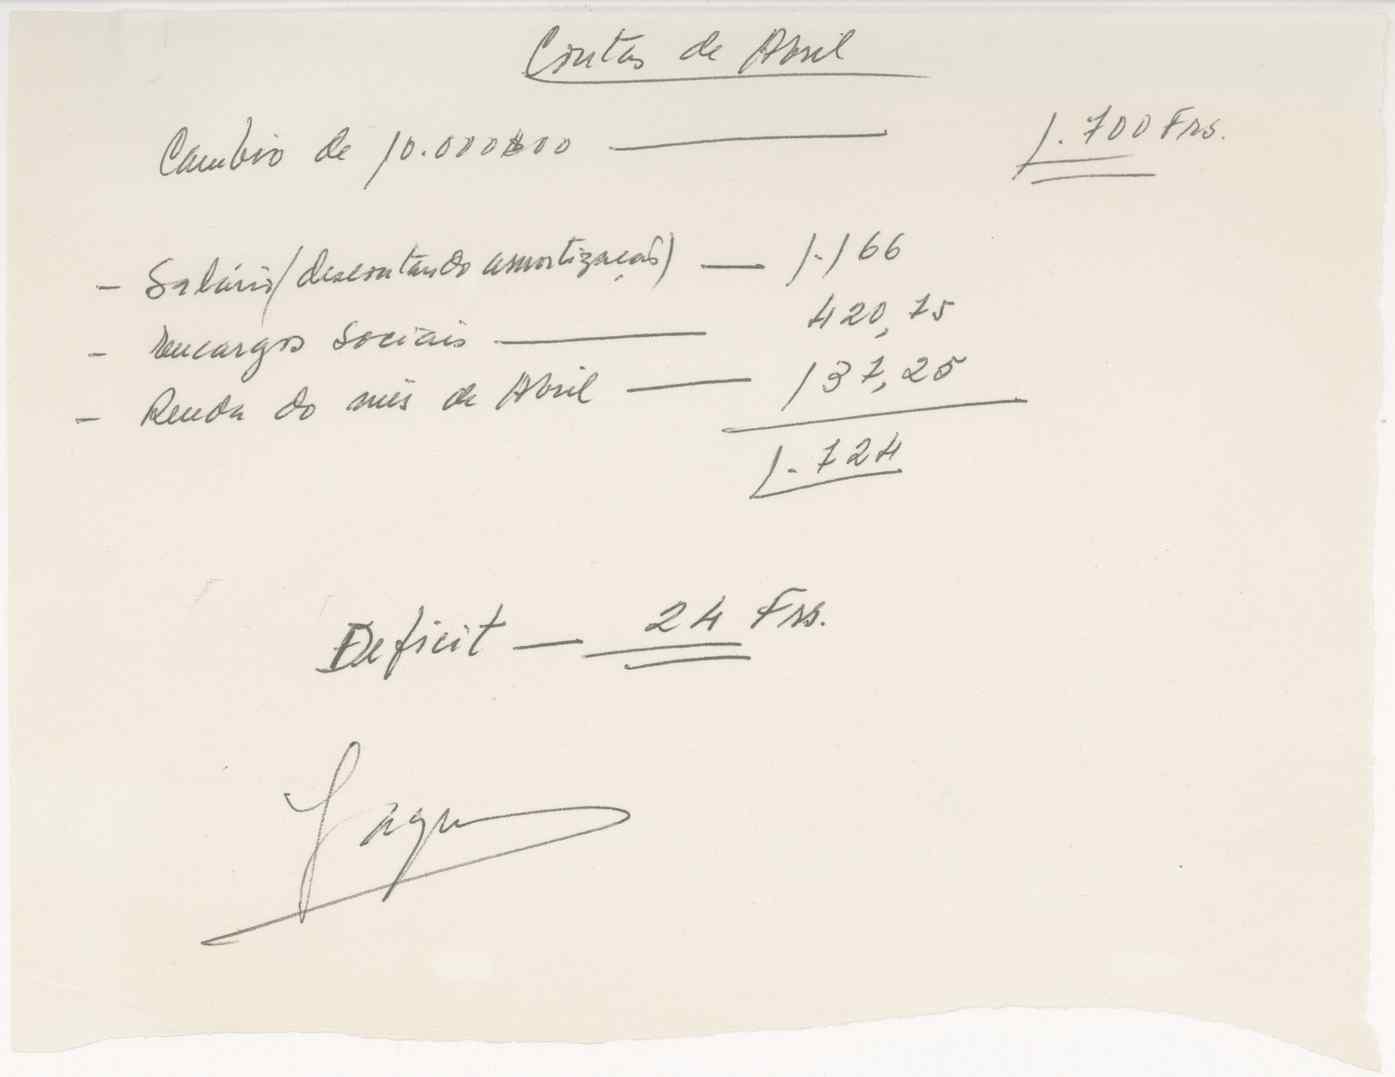 Contas de Abril
Cambio de 10.000$00 — 1.700 Frs.
- Salário (descontando amortização) — 1.166
- Encargos Sociais — 420,75
- Renda do mês de Abril — 137,25
1.724
Deficit — 24 Frs.